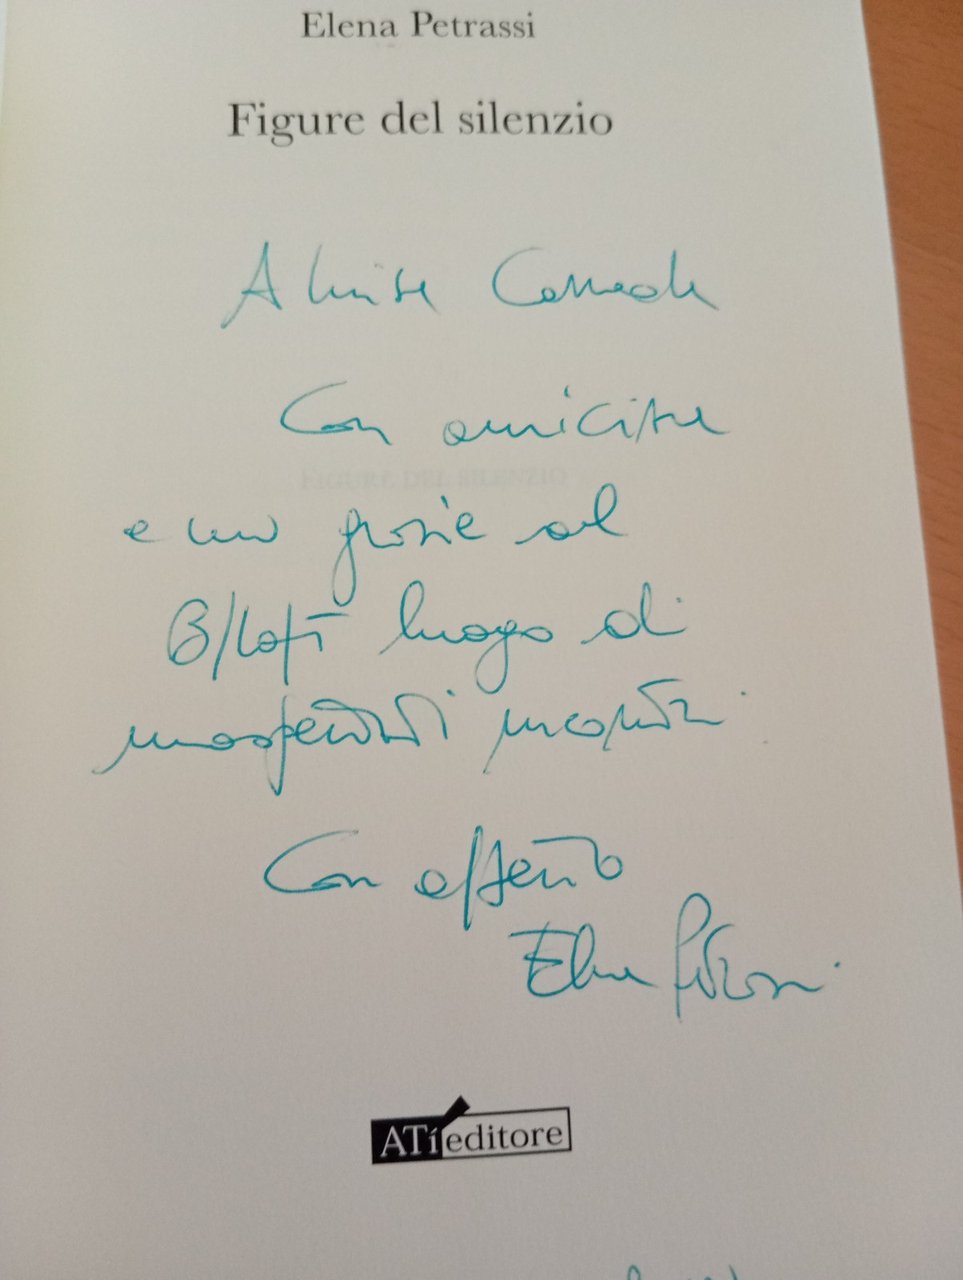 Elena Petrassi
Figure del silenzio
A Luisa
Con amicizia
FIGURE DEL SILENZIO
e un grazie al
luogo di
incontri
Con affetto
Elena Petrassi
ATíeditore